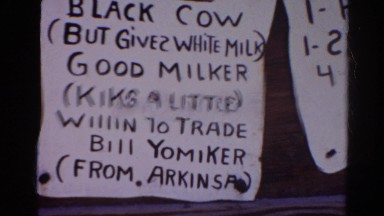 BLACK COW
(BUT GIVEZ WHITE MILK)
GOOD MILKER
(KIKS A LITTLE)
WILLIN TO TRADE
BILL YOMIKER
(FROM. ARKINSA)
1-
1-2
4